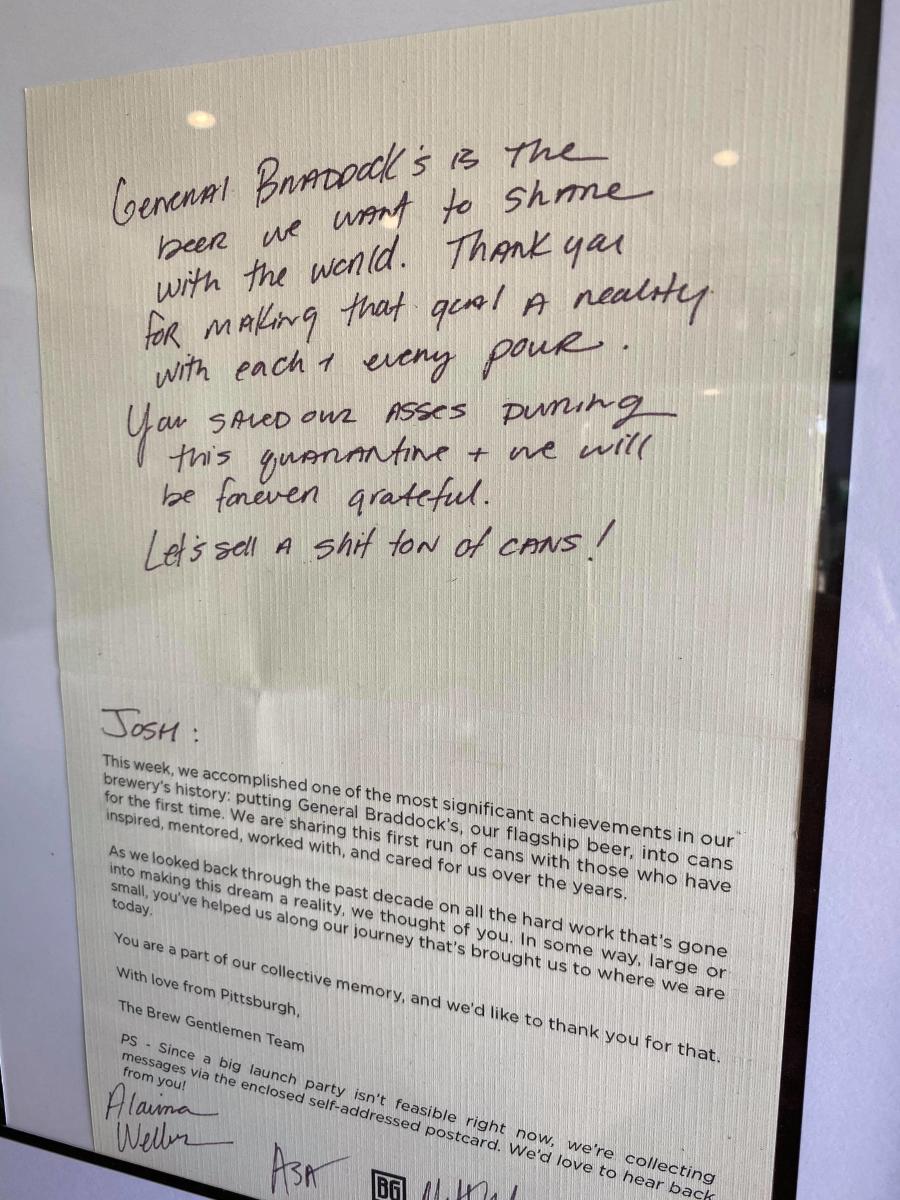 General Braddock's is the
beer we want to share
with the world. Thank you
for making that goal a reality
with each + every pour.
You saved our asses during
this quarantine + we will
be forever grateful.
Let's sell a shit ton of cans!
Josh:
This week, we accomplished one of the most significant achievements in our
brewery's history: putting General Braddock's, our flagship beer, into cans
for the first time. We are sharing this first run of cans with those who have
inspired, mentored, worked with, and cared for us over the years.
As we looked back through the past decade on all the hard work that's gone
into making this dream a reality, we thought of you. In some way, large or
small, you've helped us along our journey that's brought us to where we are
today.
You are a part of our collective memory, and we'd like to thank you for that.
With love from Pittsburgh,
The Brew Gentlemen Team
PS - Since a big launch party isn't feasible right now, we're collecting
messages via the enclosed self-addressed postcard. We'd love to hear back
from you!
Alaina
Asa
BG